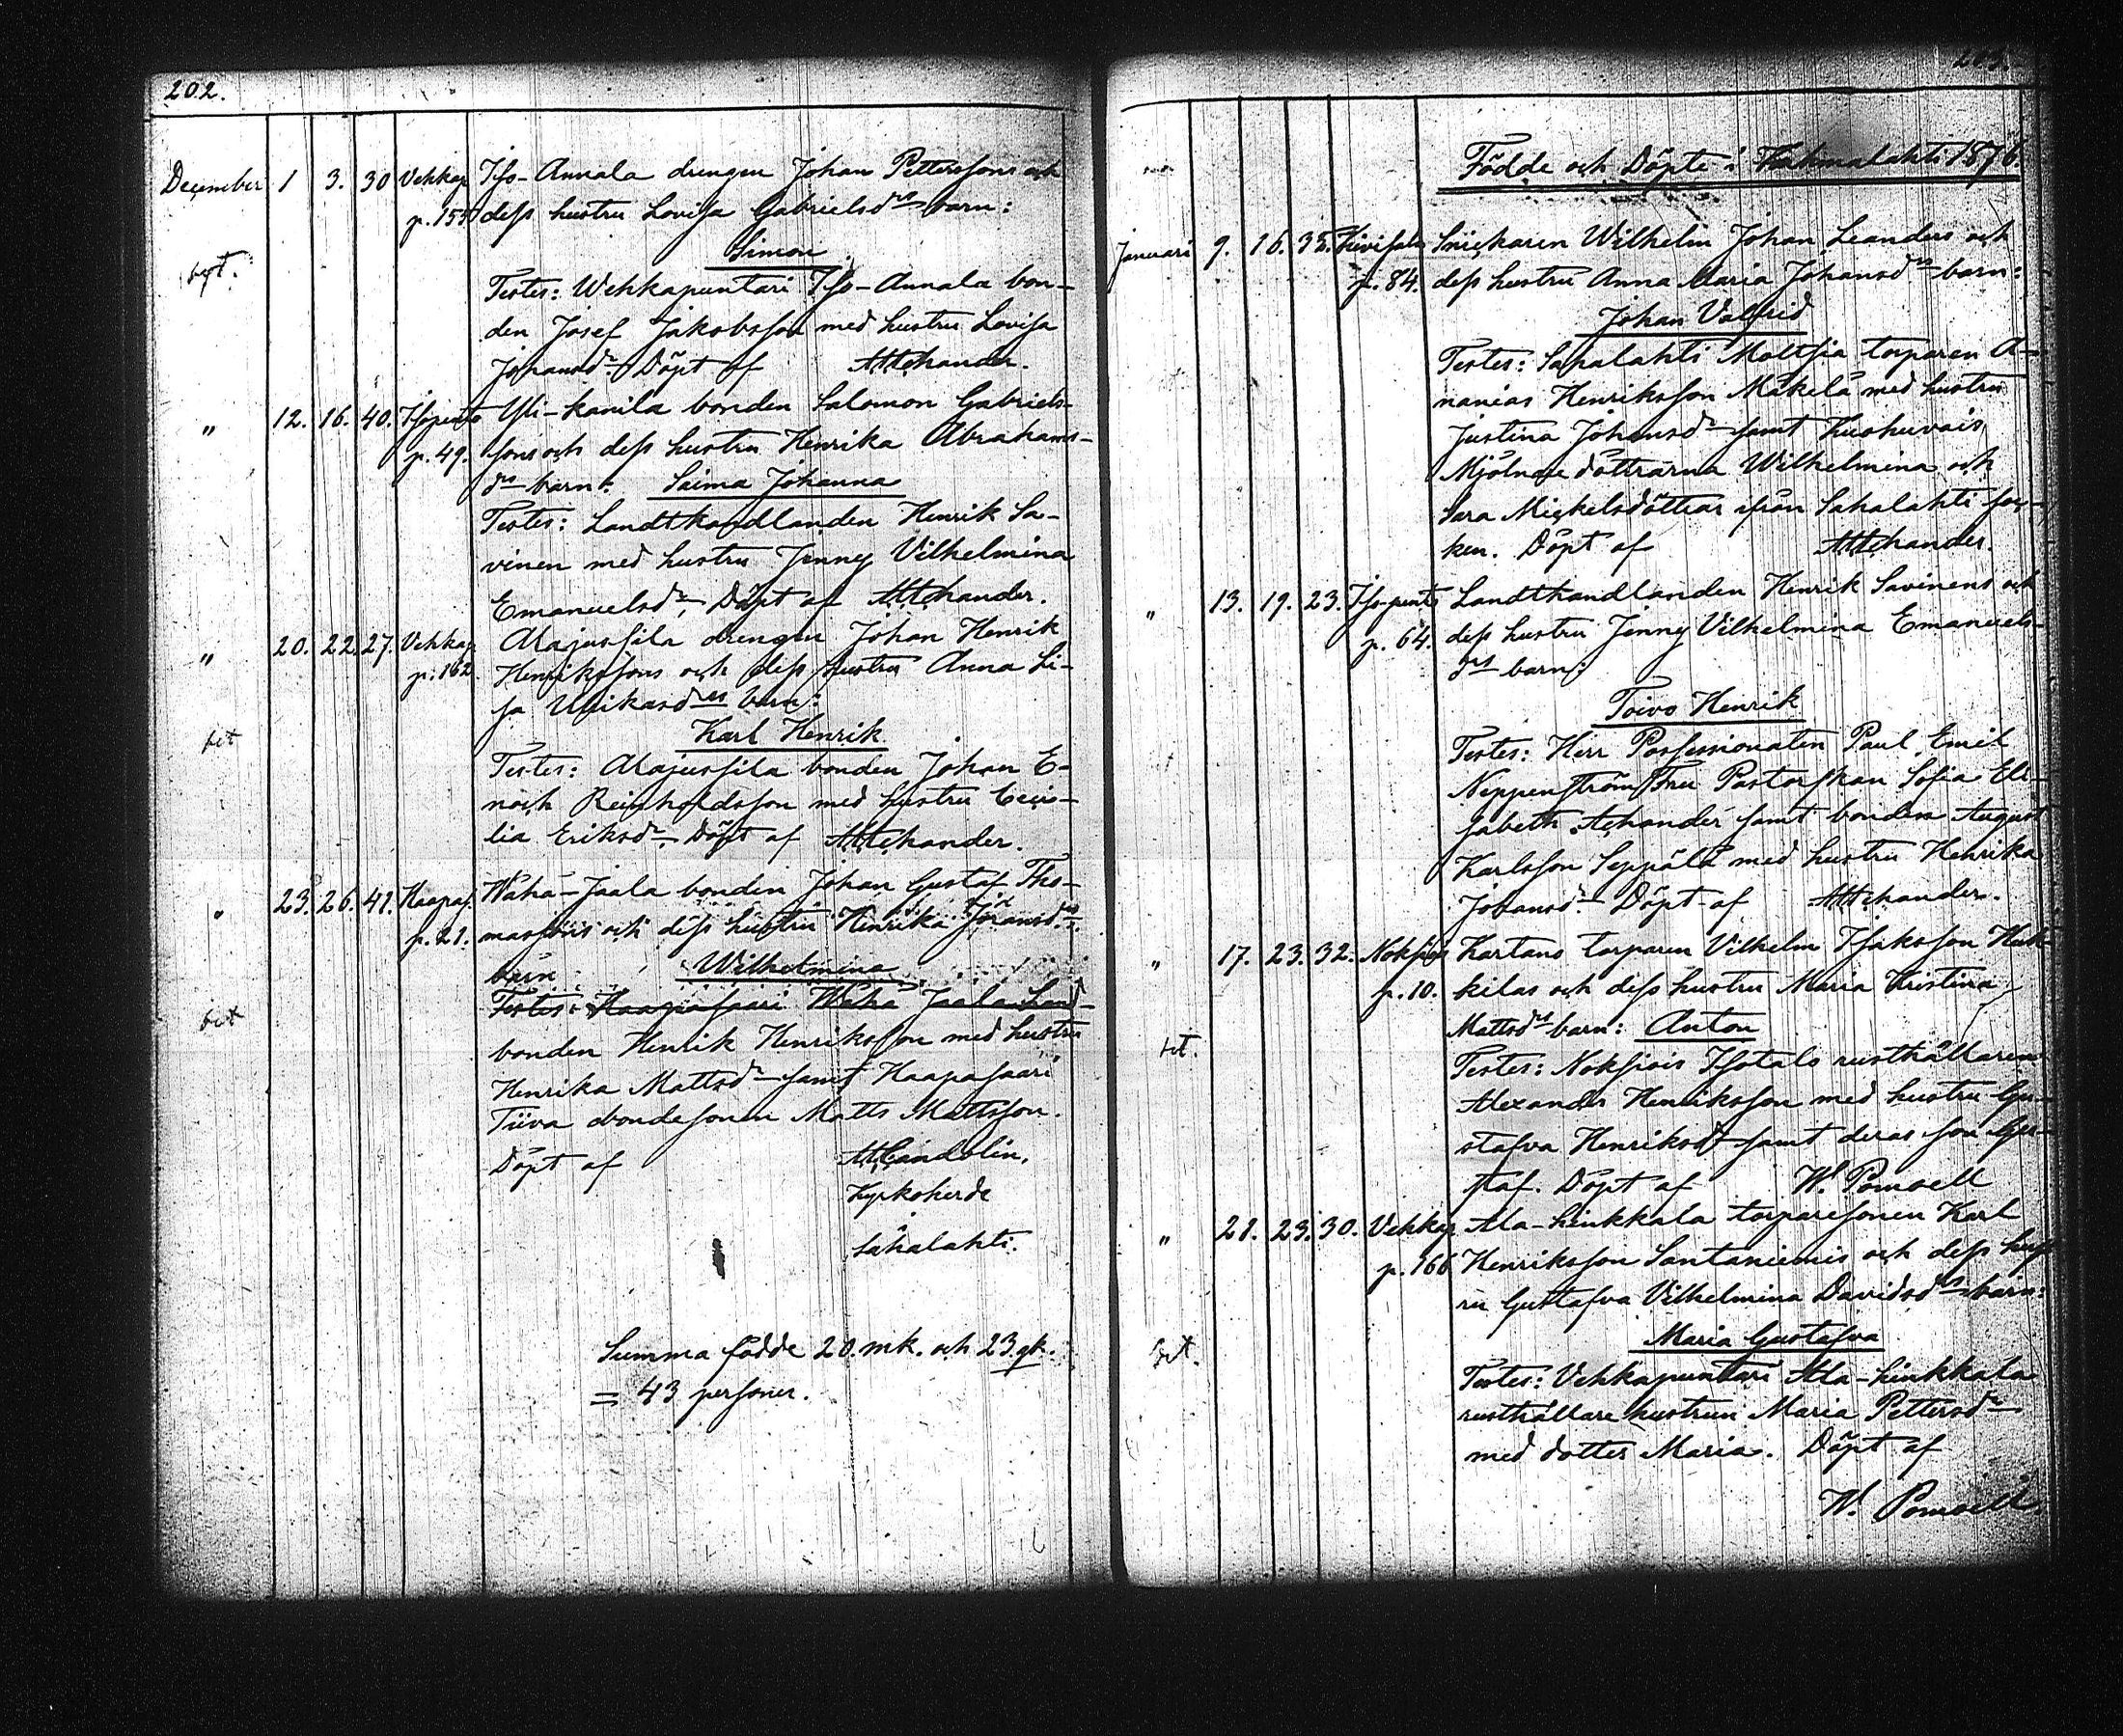 202.
December 1 3. 30 Vehkap Iso-Annala drengen Johan Petterssons och
p. 155 dess hustru Lovisa Gabrielsdrs barn:
Simon
Testes: Wehkapuntari Iso-Annala bon-
den Josef Jakobsson med hustru Lovisa
Johansdr. Döpt af
" 12. 16. 40. Isopento Yli-kanila bonden Salomon Gabriels-
p. 49. sons och dess hustru Henrika Abrahams-
drs barn: Saima Johanna
Testes: Landthandlanden Henrik Sa-
vinen med hustru Jenny Vilhelmina
Emanuelsdr, Döpt af
" 20. 22. 27. Vehkap Alajussila drengen Johan Henrik
p. 162 Henrikssons och dess hustru Anna Li-
sa barn:
bet Karl Henrik
Testes: Alajussila bonden Johan E-
noch Reinholdsson med hustru Ceci-
lia Eriksdr. Döpt af
" 23. 26. 41. Haapas. Wähä-Jaala bonden Johan Gustaf Tho-
p. 21. massons och dess hustru Henrika Johansdrs
barn Wilhelmina
Testes: Haapasaari Wähä Jaala Land-
bet bonden Henrik Henriksson med hustru
Henrika Mattsdr samt Haapasaari
Tiiva bondesonen Matts Mattsson.
Döpt af
Kyrkoherde
Sahalahti.
Summa födde 20. mk. och 23. qk.
= 43 personer.
203.
Födde och Döpte i Kuhmalahti 1876.
Januari 9. 16. 35. Snickaren Wilhelm Johan Leanders och
p. 84. dess hustru Anna Maria Johansdrs barn:
Johan Valfrid
Testes: Sapalahti Mattsia torparen A-
nanias Henriksson Mäkelä med hustru
Justina Johansdr samt
Mjölnare döttrarna Wilhelmina och
Sara Mickelsdöttrar ifrån Sahalahti soc-
ken. Döpt af
" 13. 19. 23. Iso-pento Landthandlanden Henrik Savinens och
p. 64. dess hustru Jenny Vilhelmina Emanuels-
drs barn:
Toivo Henrik
Testes: Herr Possessionaten Paul Emil
Neppenström Fru Pastorskan Sofia Eli-
sabeth samt bonden August
Karlsson Seppälä med hustru Henrika
Johansdr. Döpt af
" 17. 23. 32. Kartano torparen Vilhelm Isaksson
p. 10. kilas och dess hustru Maria Kristina
Mattsdrs barn: Anton
bet. Testes: Isotalo rusthållaren
Alexander Henriksson med hustru Gu-
stafva Henriksdr samt deras son Gus-
taf. Döpt af W. Pomoell
" 21. 23. 30. Vehkap Ala-hinkkala torparesonen Karl
p. 166 Henriksson Santaniemis och dess hust-
ru Gustafva Vilhelmina Davidsdrs barn:
bet. Maria Gustafva
Testes: Vehkapuntari Ala-hinkkala
rusthållare hustrun Maria Pettersdr
med dotter Maria. Döpt af
W. Pomoell.